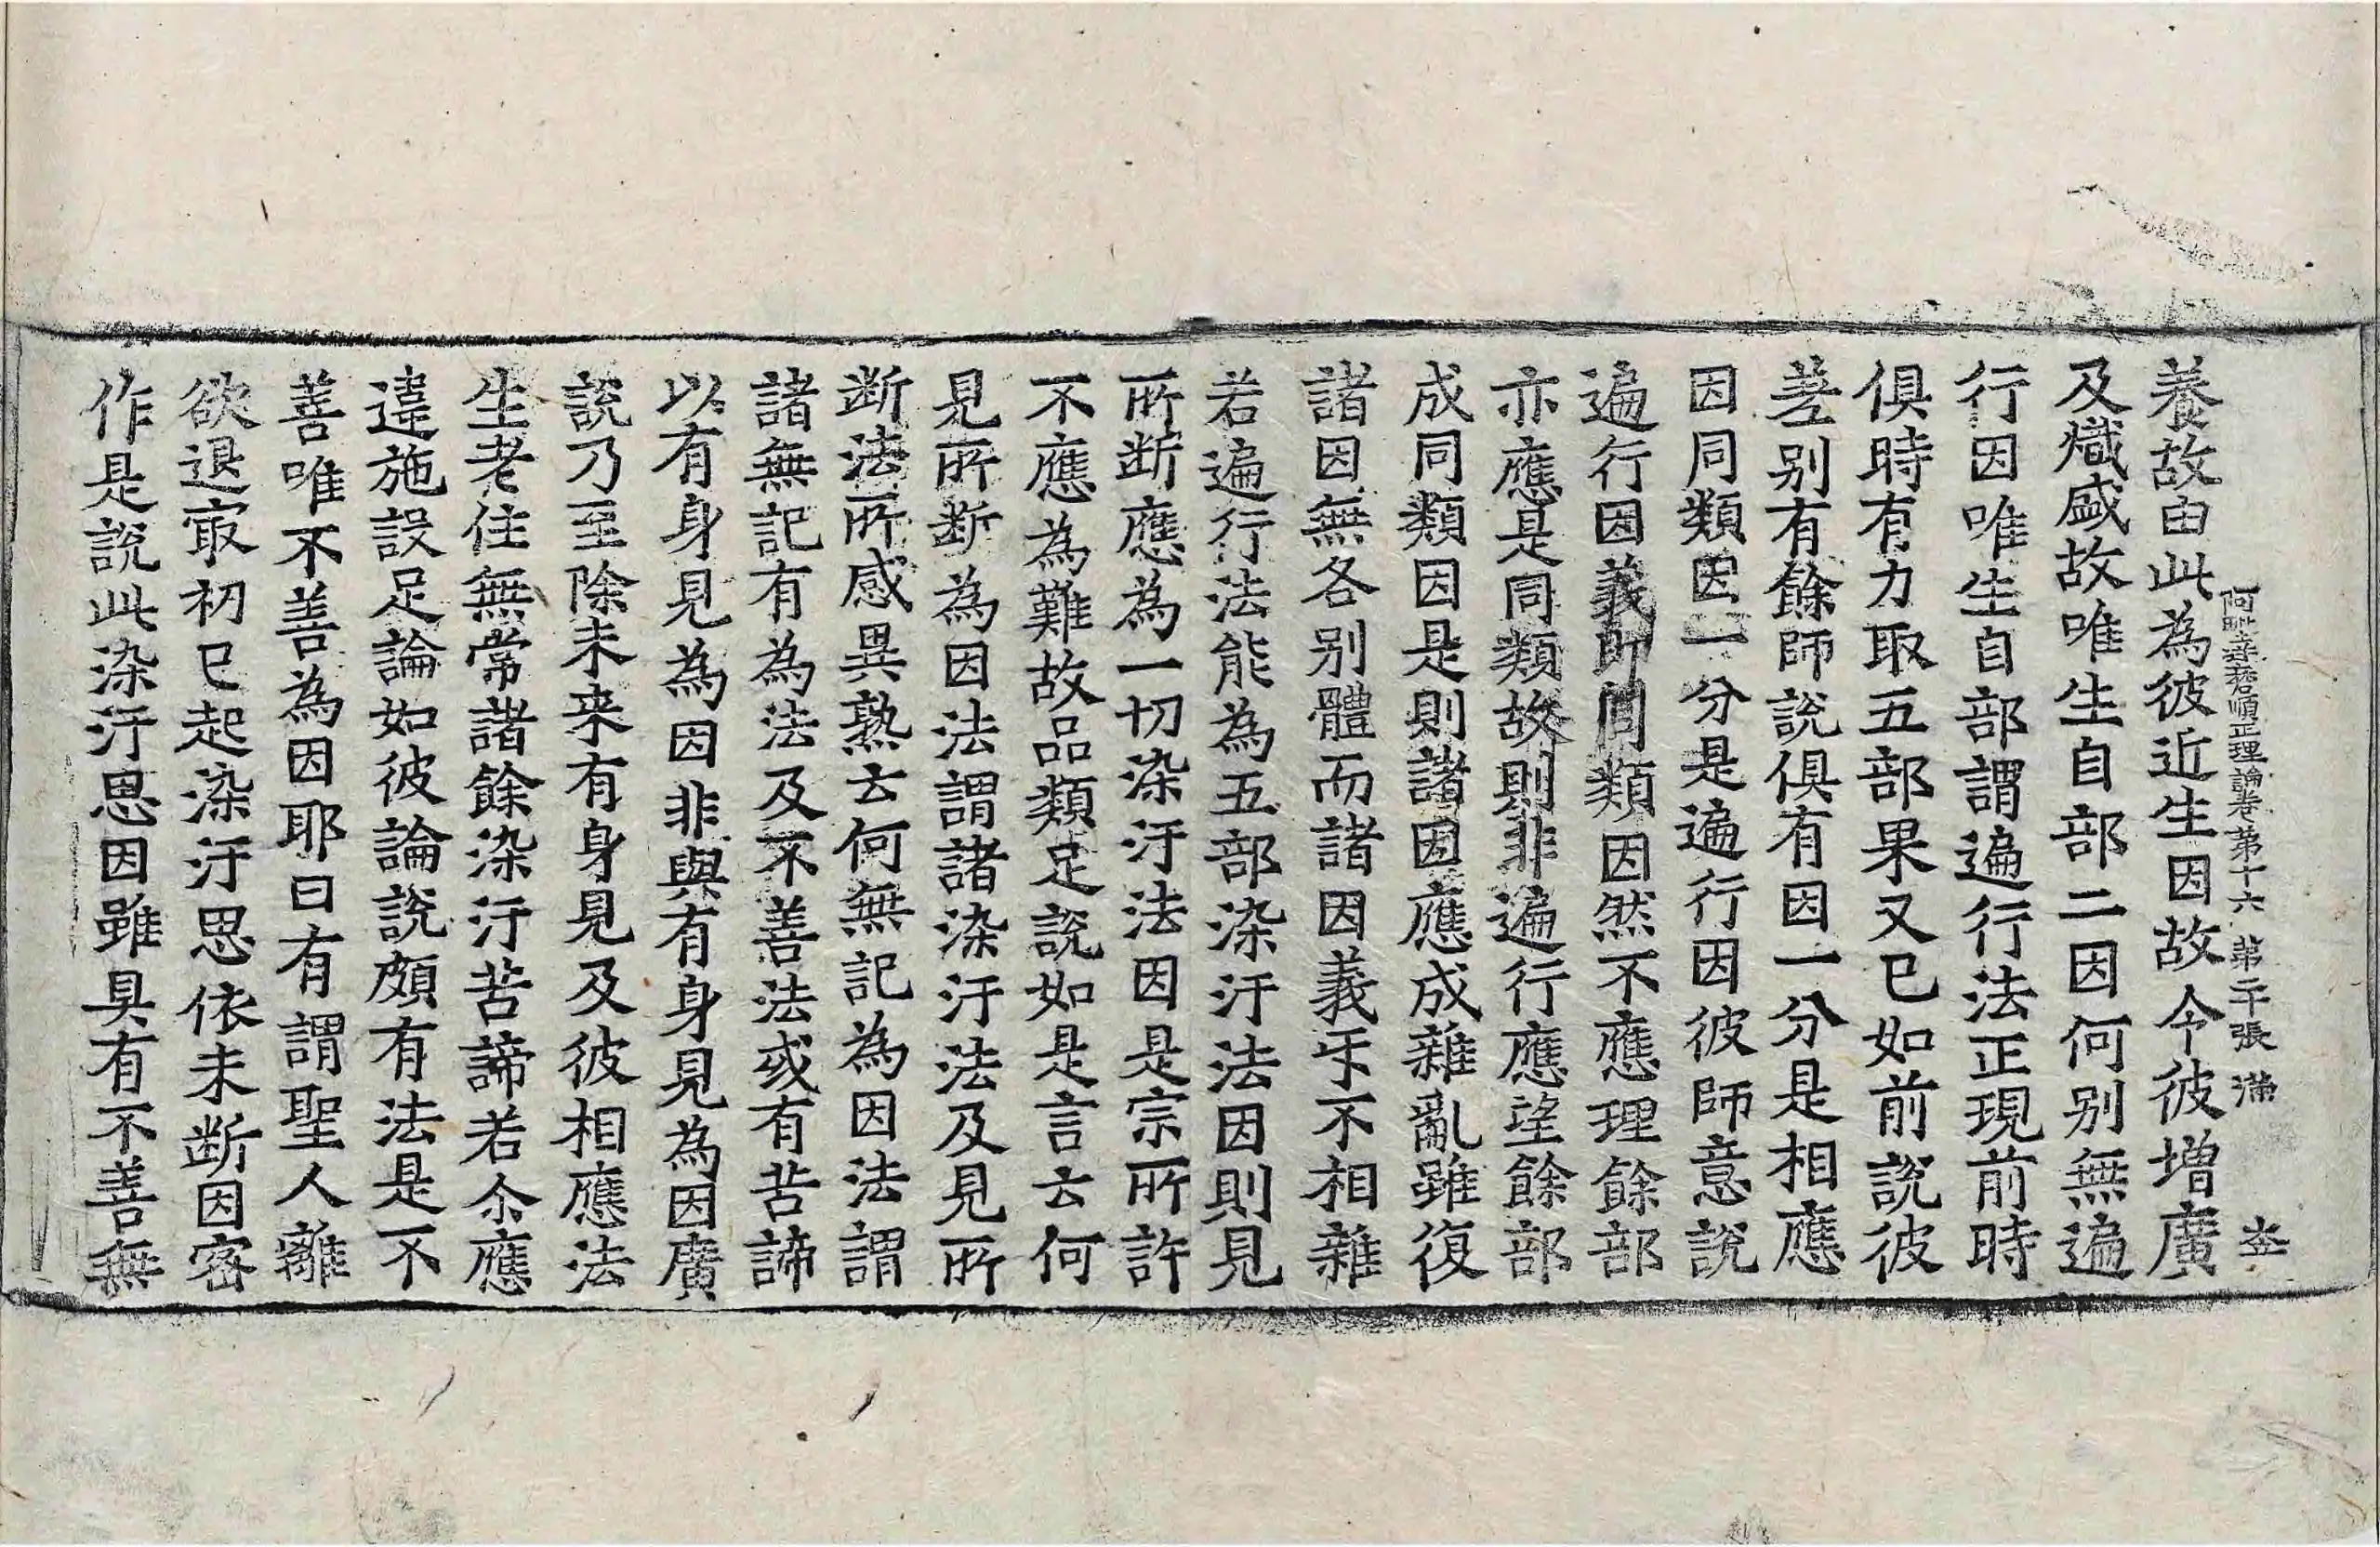 阿毗達磨順正理論卷第十六 第二十張 滿
養故由此為彼近生因故令彼增廣
及熾盛故唯生自部二因何別無遍
行因唯生自部謂遍行法正現前時
俱時有力取五部果又已如前說彼
差别有餘師說俱有因一分是相應
因同類因一分是遍行因彼師意說
遍行因義即同類因然不應理餘部
亦應是同類故則非遍行應望餘部
成同類因是則諸因應成雜亂雖復
諸因無各别體而諸因義㸦不相雜
若遍行法能為五部染汙法因則見
所斷應為一切染汙法因是宗所許
不應為難故品類足說如是言云何
見所断為因法謂諸染汙法及見所
断法所感異熟云何無記為因法謂
諸無記有為法及不善法或有苦諦
以有身見為因非與有身見為因廣
說乃至除未来有身見及彼相應法
生老住無常諸餘染汙苦諦若尒應
違施設足論如彼論說頗有法是不
善唯不善為因耶曰有謂聖人離
欲退㝡初已起染汙思依未断因密
作是說此染汙思因雖具有不善無